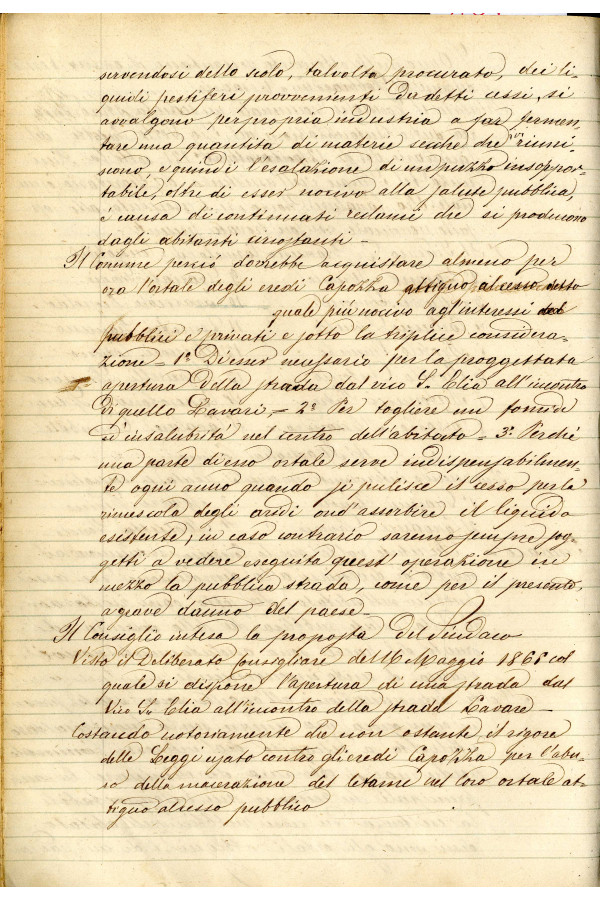 servendosi dello scolo, talvolta procurato, dei li-
quidi pestiferi provvenienti da detti cessi, si
avvalgono per propria industria a far fermen-
tare una quantita di materie secche che vi riuni-
scono, e quindi l'esalazione di un puzzo insoppor-
tabile, oltre di esser nocivo alla salute pubblica,
è causa di continuati reclami che si producono
dagli abitanti circostanti –
Il Comune perciò dovrebbe acquistare almeno per
ora l'ortale degli eredi Capozza attiguo al cesso detto
quale più nocivo agl'interessi
pubblici e privati e sotto la triplice considera-
zione = 1º Di esser necessario per la proggettata
apertura della strada dal vico S. Elia all'incontro
di quello Lavari = 2º Per togliere un fomite
d'insalubrità nel centro dell'abitato = 3º Perchè
una parte di esso ortale serve indispensabilmen-
te ogni anno quando si pulisce il cesso per la
rimescola degli ond'assorbire il liquido
esistente, in caso contrario saremo sempre sog-
getti a vedere eseguita quest'operazione in
mezzo la pubblica strada, come per il presente,
a grave danno del paese –
Il Consiglio intesa la proposta del Sindaco
Visto il Deliberato Consigliare del 16 Maggio 1865 col
quale si dispone l'apertura di una strada dal
Vico S. Elia all'incontro della strada Lavare –
Costando notoriamente che non ostante il rigore
delle Leggi usato contro gli eredi Capozza per l'abu-
so della macerazione del letame nel loro ortale at-
tiguo al cesso pubblico